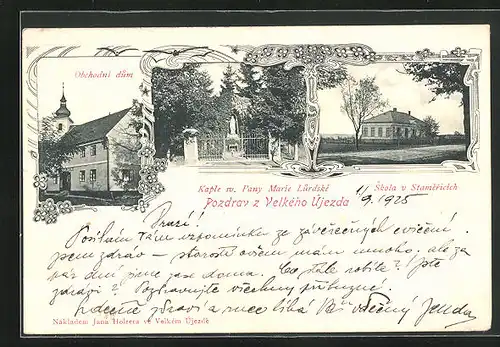 Obchodní dům
Kaple sv. Pany Marie Lúrdské
Škola v Staměřicích
Pozdrav z Velkého Újezda
11/9. 1925
Drazí!
Posílám Vám vzpomínku ze závěrečných cvičení.
jsem zdráv – starostí ovšem mám mnoho. ale za
pár dní jsme zase doma. Co stále robíte? jste
zdraví? Pozdravujte všechny příbuzné.
Srdečně zdraví a ruce líbá Váš vděčný Jenda
Nákladem Jana Holzera ve Velkém Újezdě